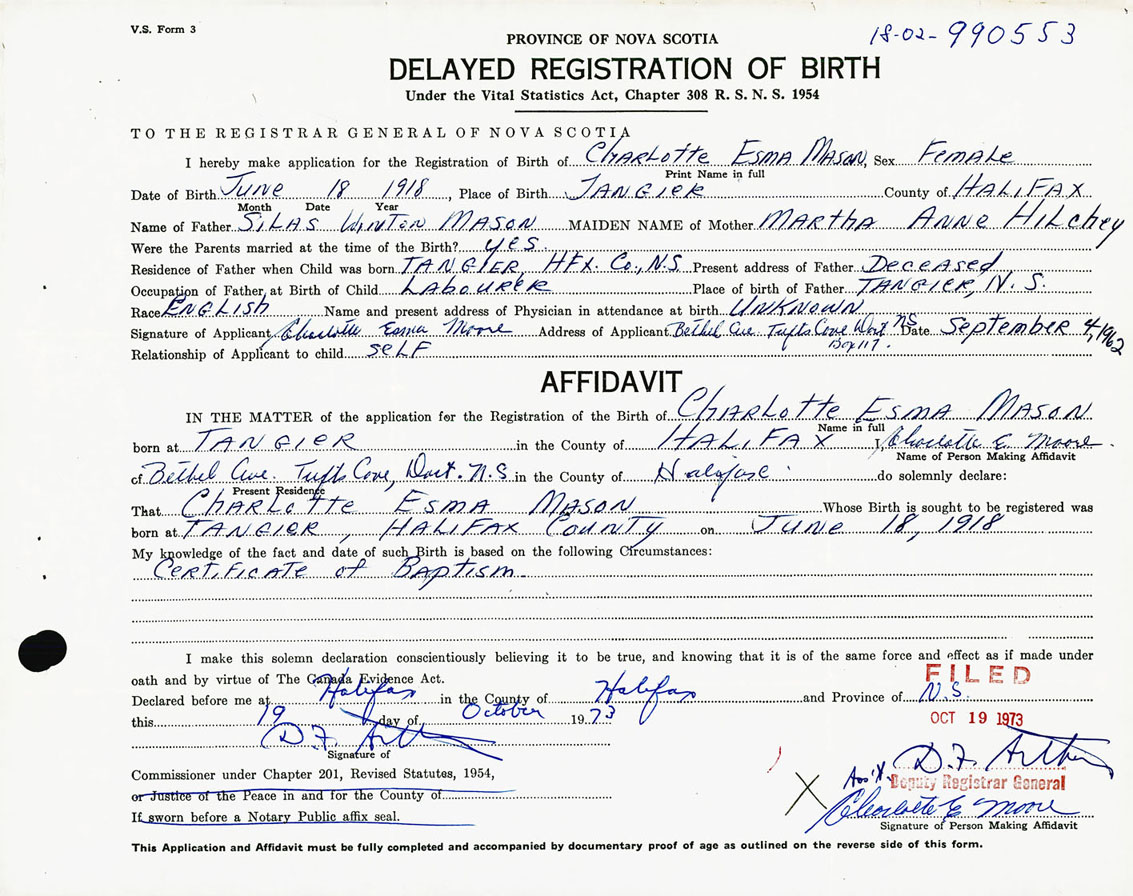 V.S. Form 3
18-02-990553
PROVINCE OF NOVA SCOTIA
DELAYED REGISTRATION OF BIRTH
Under the Vital Statistics Act, Chapter 308 R. S. N. S. 1954
TO THE REGISTRAR GENERAL OF NOVA SCOTIA
I hereby make application for the Registration of Birth of Charlotte Esma Mason, Sex Female
Print Name in full
Date of Birth June 18 1918, Place of Birth Tangier County of Halifax
Month Date Year
Name of Father Silas Winton Mason MAIDEN NAME of Mother Martha Anne Hilchey
Were the Parents married at the time of the Birth? yes
Residence of Father when Child was born Tangier, Hfx. Co., N.S Present address of Father Deceased
Occupation of Father at Birth of Child Labourer Place of birth of Father Tangier, N.S.
Race English Name and present address of Physician in attendance at birth Unknown
Signature of Applicant Charlotte Esma Moore Address of Applicant Bethel Ave. Tufts Cove Dart NS Date September 4, 1962
Box 117.
Relationship of Applicant to child self
AFFIDAVIT
IN THE MATTER of the application for the Registration of the Birth of Charlotte Esma Mason
Name in full
born at Tangier in the County of Halifax I, Charlotte E Moore
Name of Person Making Affidavit
of Bethel Ave. Tufts Cove, Dart. N.S in the County of Halifax do solemnly declare:
Present Residence
That Charlotte Esma Mason Whose Birth is sought to be registered was
born at Tangier, Halifax County on June 18, 1918
My knowledge of the fact and date of such Birth is based on the following Circumstances:
Certificate of Baptism
I make this solemn declaration conscientiously believing it to be true, and knowing that it is of the same force and effect as if made under
oath and by virtue of The Canada Evidence Act.
FILED
Declared before me at Halifax in the County of Halifax and Province of N.S.
this 19 day of October 1973
OCT 19 1973
D.F. Arthur
Signature of
D.F. Arthur
Commissioner under Chapter 201, Revised Statutes, 1954,
Deputy Registrar General
or Justice of the Peace in and for the County of
X Charlotte E Moore
If sworn before a Notary Public affix seal.
Signature of Person Making Affidavit
This Application and Affidavit must be fully completed and accompanied by documentary proof of age as outlined on the reverse side of this form.